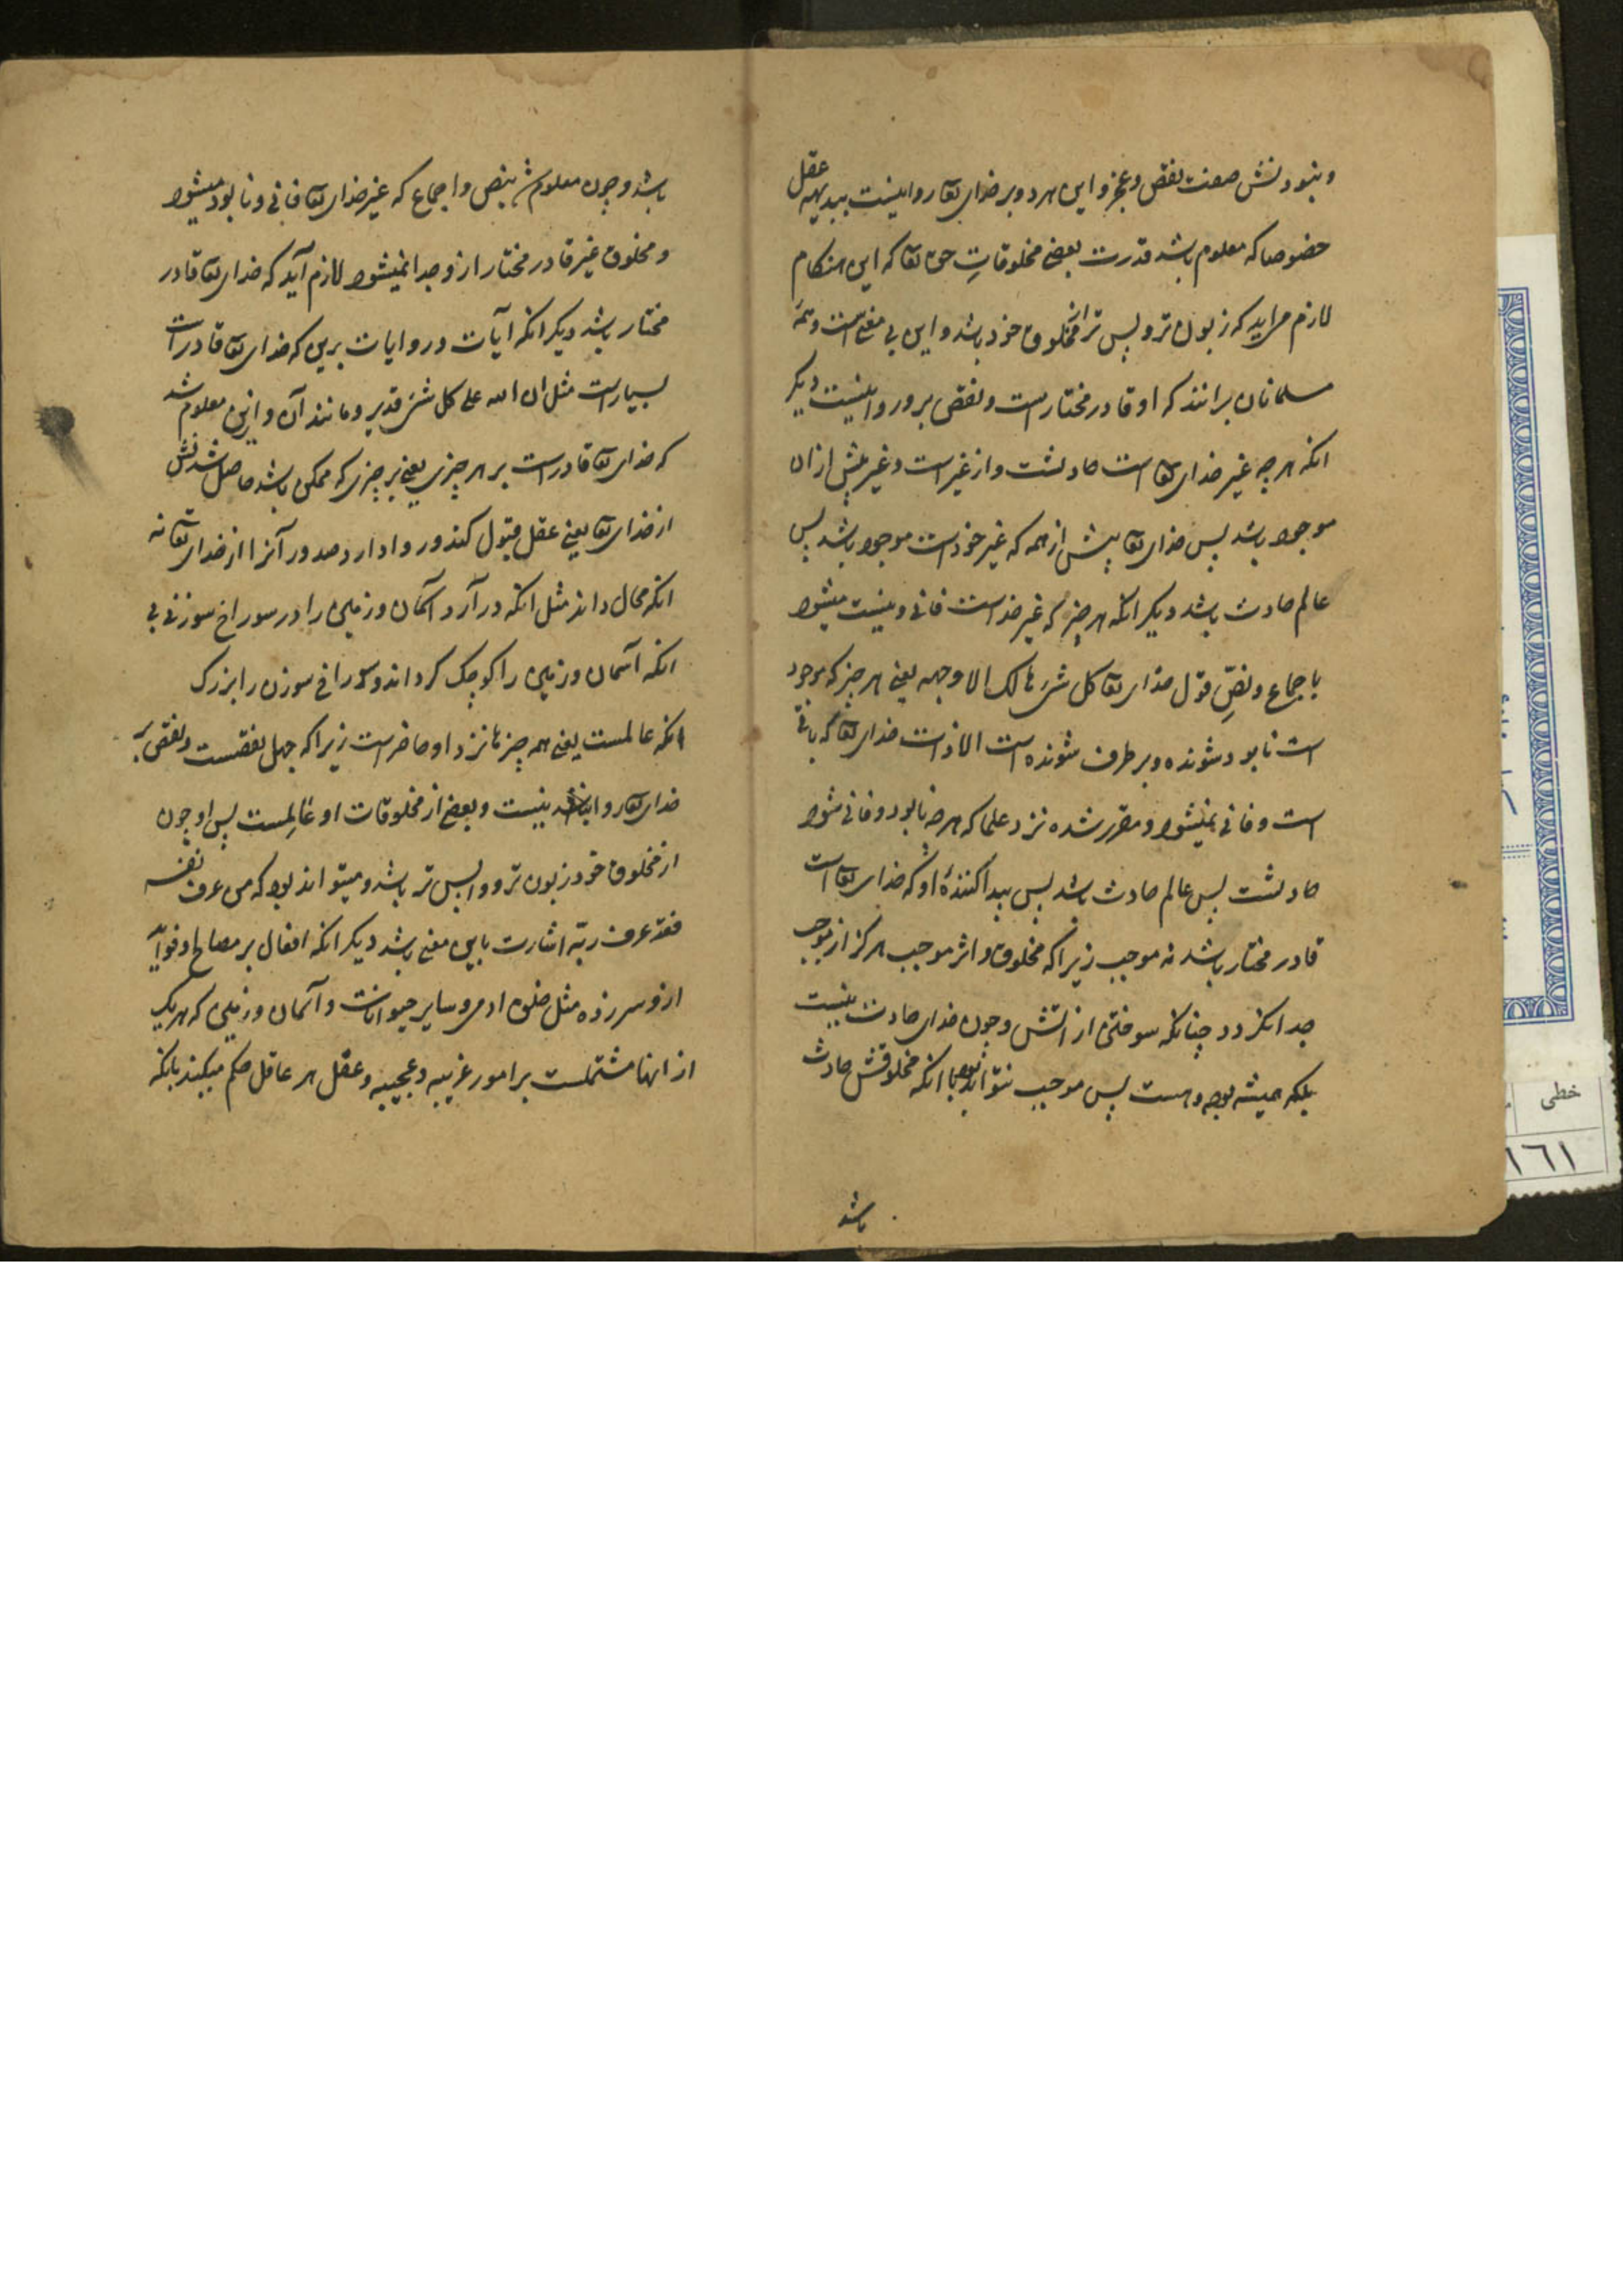 و نبودنش صفت نقص و عجز و این هر دو بر خدای تعا روا نیست ببدیهه عقل
خصوصا که معلوم باشد قدرت بعضی مخلوقاتِ حق تعا که این هنکام
لازم می اید که زبون تر و پس تر از مخلوق خود باشد و این بی معنی است و همه
مسلمانان برانند که او قادر مختار است و نقص برو روا نیست دیکر
انکه هر چه غیر خدای تعا است حادثست و از غیر است و غیر پیش ازان
موجود باشد پس خدای تعا پیش از همه که غیر خود است موجود باشد پس
عالم حادث باشد دیکر انکه هر چیز که غیر خداست فانی و نیست میشود
باجماع و نصِّ قول خدای تعا کل شیء هالک الا وجهه یعنی هر چیز که موجود
است نابود شونده و بر طرف شونده است الا ذات خدای تعا که باقی
است و فانی نمیشود و مقرر شده نزد علما که هر چه نابود و فانی شود
حادثست پس عالم حادث باشد پس پیدا کنندهٔ او که خدای تعا است
قادر مختار باشد نه موجب زیرا که مخلوق و اثر موجب هرکز از موجب
جدا نکردد چنانکه سوختن از اتش و چون خدای حادث نیست
بلکه همیشه بوده و هست پس موجب نتواند بود با انکه مخلوقش حادث
باشد
باشد و چون معلوم شد بنص و اجماع که غیر خدای تعا فانی و نابود میشود
و مخلوق غیر قادر مختار ازو جدا نمیشود لازم آید که خدای تعا قادر
مختار باشد دیکر انکه آیات و روایات برین که خدای تعا قادر است
بسیار است مثل ان الله علی کل شیء قدیر و مانند آن و ازین معلوم شد
که خدای تعا قادر است بر هر چیزی یعنی بر چیزی که ممکن باشد حاصل شدنش
از خدای تعا یعنی عقل قبول کند و روا دارد صدور آنرا از خدای تعا نه
انکه محال داند مثل انکه در آرد آسمان و زمین را در سوراخ سوزنی بی
انکه آسمان و زمین را کوچک کرداند و سوراخ سوزن را بزرک
انکه عالمست یعنی همه چیزها نزد او حاضر است زیرا که جهل نقصست و نقص بر
خدای تعا روا نیست و بعضی از مخلوقات او عالِمست پس او چون
از مخلوق خود زبون تر و واپس تر باشد و میتواند بود که من عرف نفسه
فقد عرف ربّه اشارت باین معنی باشد دیکر انکه افعال بر مصالح و فواید
ازو سر زده مثل خلق ادمی و سایر حیوانات و آسمان و زمین که هر یک
از انها مشتملست بر امور غریبه و عجیبه و عقل هر عاقل حکم میکند بانکه
خطی